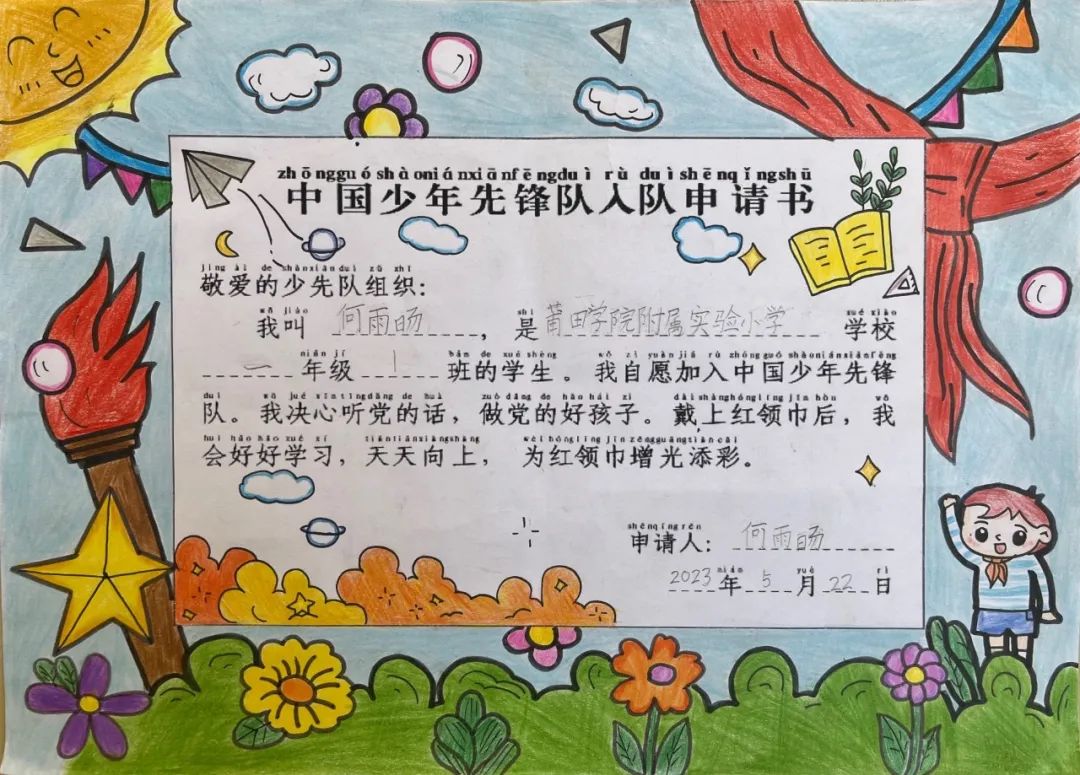 zhōngguóshàoniánxiānfēngduì rù duìshēnqǐngshū
中国少年先锋队入队申请书
jìng ài de shàoxiānduì zǔ zhī
敬爱的少先队组织：
wǒ jiào shì xué xiào
我叫 何雨旸 ， 是 莆田学院附属实验小学 学校
nián jí bān de xué shēng wǒ zì yuàn jiā rù zhōngguóshàoniánxiānfēng
一 年级 1 班的学生。我自愿加入中国少年先锋
duì wǒ jué xīntīngdǎng de huà zuò dǎng de hǎo hái zi dài shànghónglǐng jīn hòu wǒ
队。我决心听党的话，做党的好孩子。戴上红领巾后，我
huì hǎo hǎo xué xí tiāntiānxiàngshàng wèi hónglǐng jīn zēngguāngtiāncǎi
会好好学习，天天向上，为红领巾增光添彩。
shēnqǐngrén
申请人： 何雨旸
nián yuè rì
2023 年 5 月 22 日